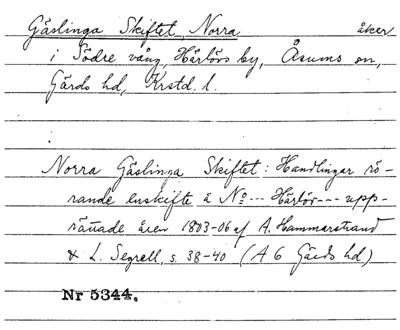 Gäslinga Skiftet, Norra åker
i Södre vång, Härlövs by, Åsums sn,
Gärds hd, Krstd. l.
Norra Gäslinga Skiftet: Handlingar rö-
rande enskifte å No --- Härlöv --- upp-
rättade åren 1803-06 af A. Hammarstrand
& L. Segrell, s. 38-40 (A 6 Gärds hd)
Nr 5344.